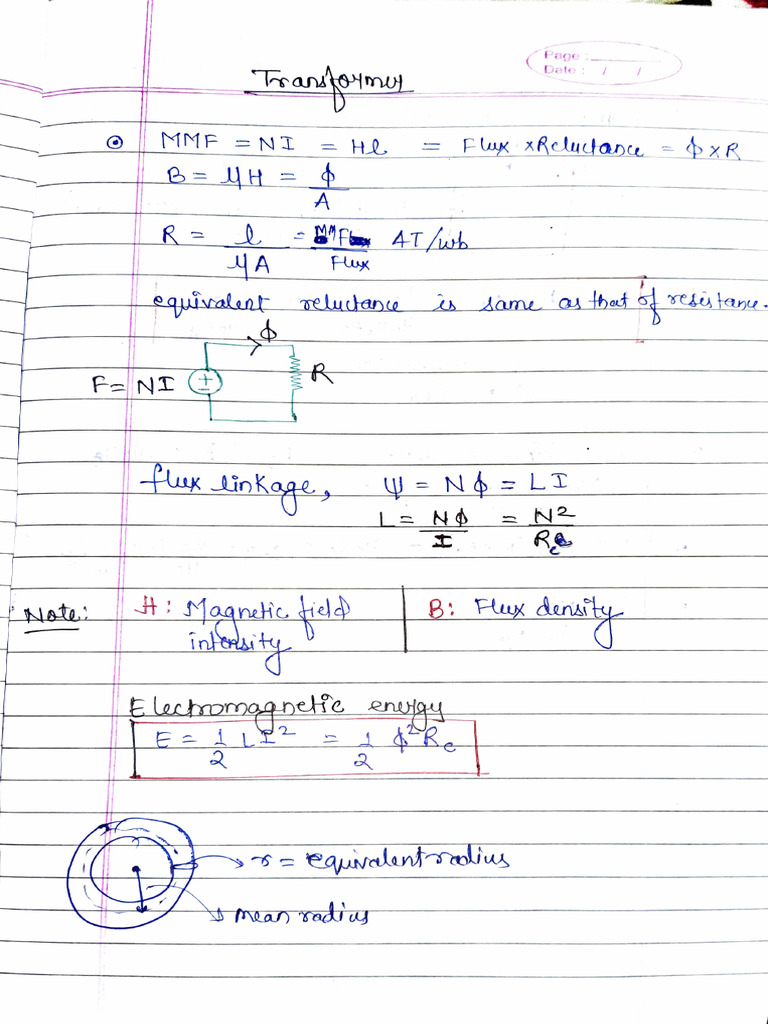 Page:
Date: / /
Transformer
⊙ MMF = NI = Hl = Flux × Reluctance = ϕ × R
B = μH = ϕ/A
R = l/μA = MMF/Flux AT/wb
equivalent reluctance is same as that of resistance.
ϕ
F = NI ± R
flux linkage, Ψ = Nϕ = LI
L = Nϕ/I = N²/Rc
Note: H: Magnetic field intensity | B: Flux density
Electromagnetic energy
E = 1/2 LI² = 1/2 ϕ²Rc
r = equivalent radius
mean radius